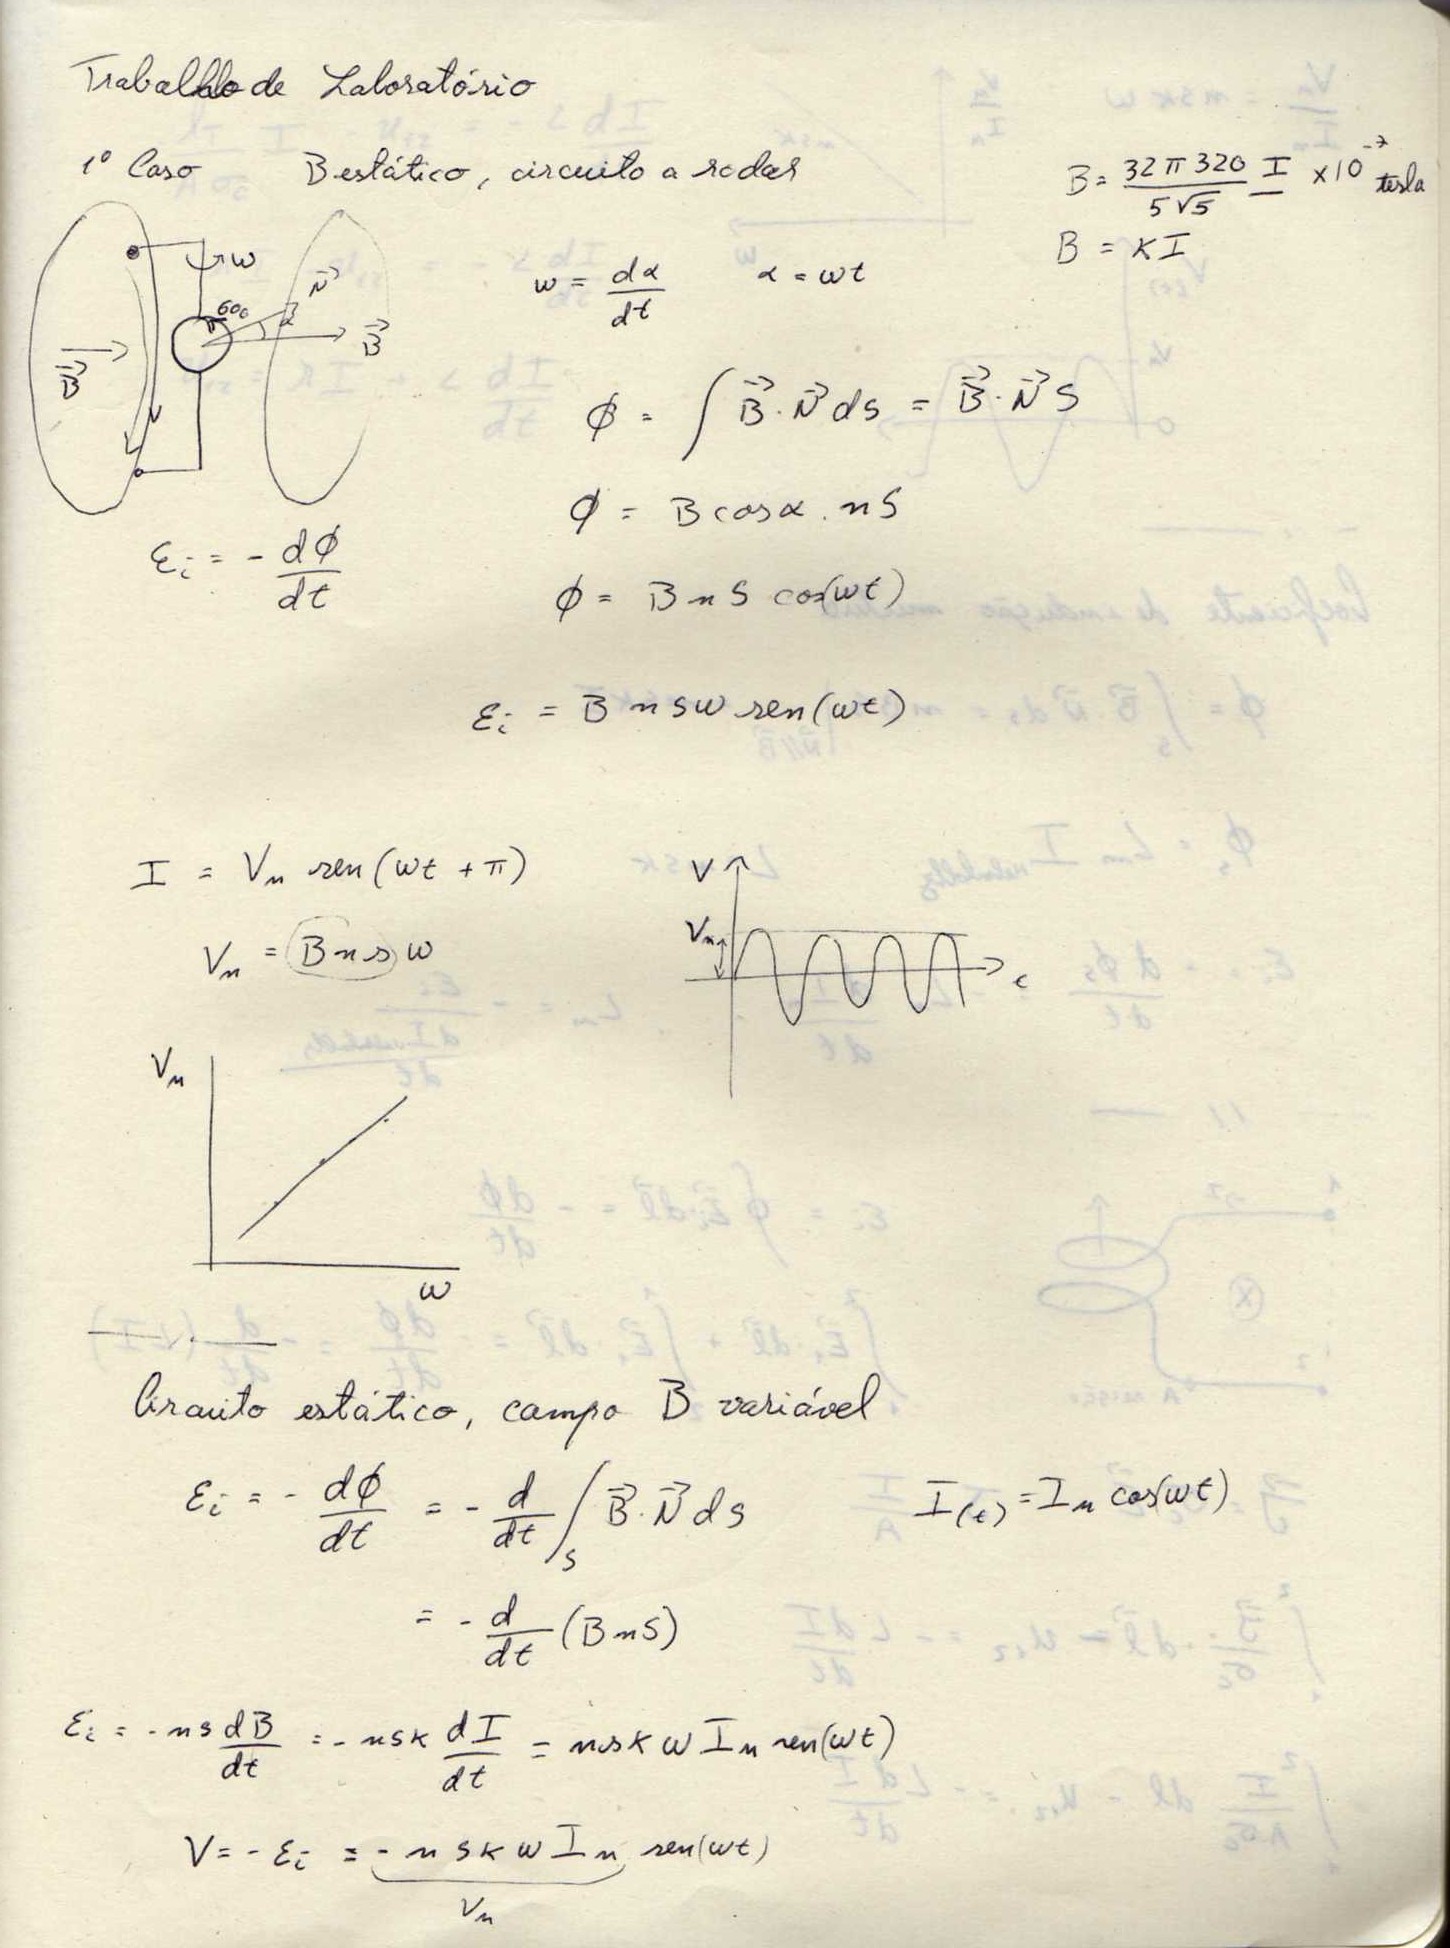 Trabalho de Laboratório
1º Caso B estático, circuito a rodar
B = \frac{32 π 320}{5 √5} I ×10^{-7} tesla
B = KI
ω
600
N⃗
α
B⃗
B⃗
ω = \frac{dα}{dt} α = ωt
ϕ = ∫ B⃗ . N⃗ ds = B⃗ . N⃗ S
ϕ = B cos α . n S
ε_i = - \frac{dϕ}{dt}
ϕ = B n S cos(ωt)
ε_i = B n s ω sen(ωt)
I = V_m sen(ωt + π)
V_m = (B n s) ω
V
V_m
t
V_m
ω
Circuito estático, campo B variável
ε_i = - \frac{dϕ}{dt} = - \frac{d}{dt} ∫_S B⃗ . N⃗ ds I(t) = I_m cos(ωt)
= - \frac{d}{dt} (B n S)
ε_i = - n s \frac{dB}{dt} = - n s K \frac{dI}{dt} = n s K ω I_m sen(ωt)
V = - ε_i = - n s K ω I_m sen(ωt)
V_m